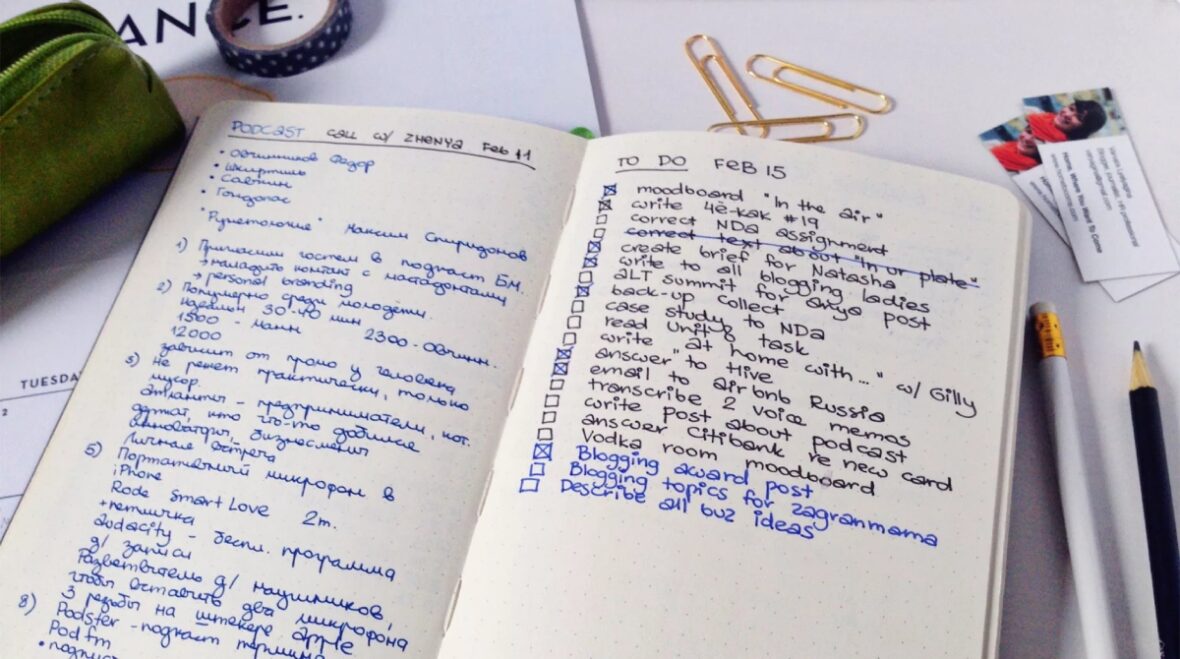 ANCE.
TUESDA
2
PODCAST call w/ ZHENYA Feb 11
• Овчинников Федор
• Шкиртиль
• Савкин
• Гондопас
"Рунетология" Максим Спиридонов
1) Пригласим гостем в подкаст Б.М.
→ наладить контакт с мастодонтами
→ personal branding
2) Популярно среди молодёжи.
идеален 30-40 мин
1500 - Манн 2300 - Овчинн.
12000
зависит от промо у человека
3) Не режет практически, только
мусор.
Атланты - предприниматели, кот.
думают, кто что-то добился
инноваторы, бизнесмены
личная встреча
5) Портативный микрофон в
iPhone
Rode smart Love 2m.
+ петличка
audacity - беспл. программа
д/ записи
Разветвитель д/ наушников,
чтобы вставить два микрофона
3 резьбы на штекере apple
8) Podster - подкаст терминал
Pod fm
TO DO FEB 15
moodboard "In the air"
write 4ë-kak #19
correct NDa assignment
correct text about "In ur plate"
create brief for Natasha
write to all blogging ladies
aLT summit for Snyo post
back-up collect
case study to NDa
read Unity task
write "at home with..." w/ Gilly
answer to Hive
email to airbnb Russia
transcribe 2 voice memos
write post about podcast
answer Citibank re new card
Vodka room moodboard
Blogging award post
Blogging topics for zagranmama
Describe all buz ideas
Home. Where You Want To Come